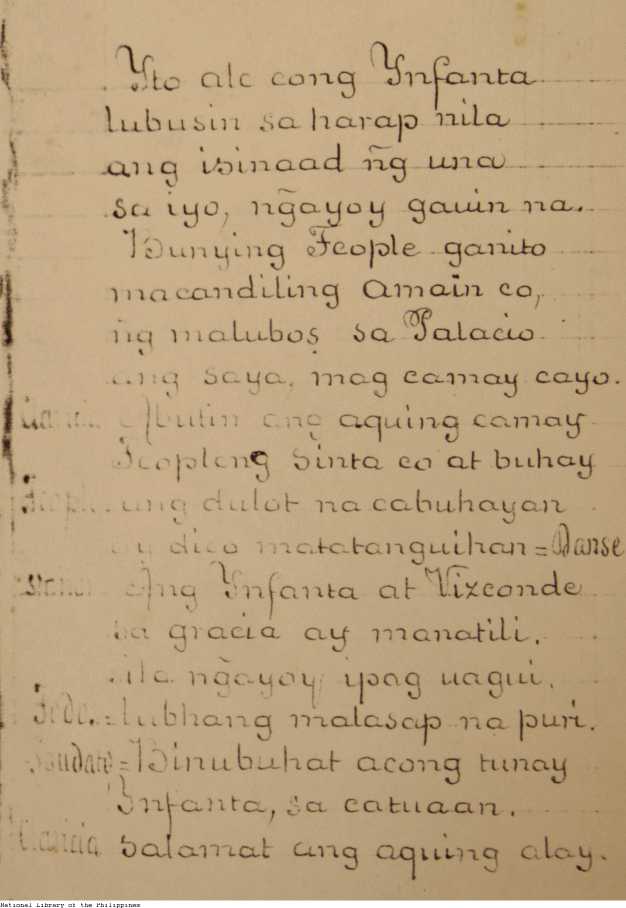 Yto ale cong Ynfanta
lubusin sa harap nila
ang isinaad ñg una
sa iyo, ng̃ayoy gauin na.
Bunying Feople ganito
macandiling Amain co,
ñg malubos sa Palacio
ang saya, mag camay cayo.
Abutin ang aquing camay
Feopleng Sinta co at buhay
ang dulot na cabuhayan
ay dico matatanguihan = Danse
Ang Ynfanta at Vizconde
sa gracia ay manatili.
ng̃ayoy ipag uagui.
lubhang matasap na puri.
Binubuhat acong tunay
Ynfanta, sa catuaan.
Salamat ang aquing alay.
National Library of the Philippines